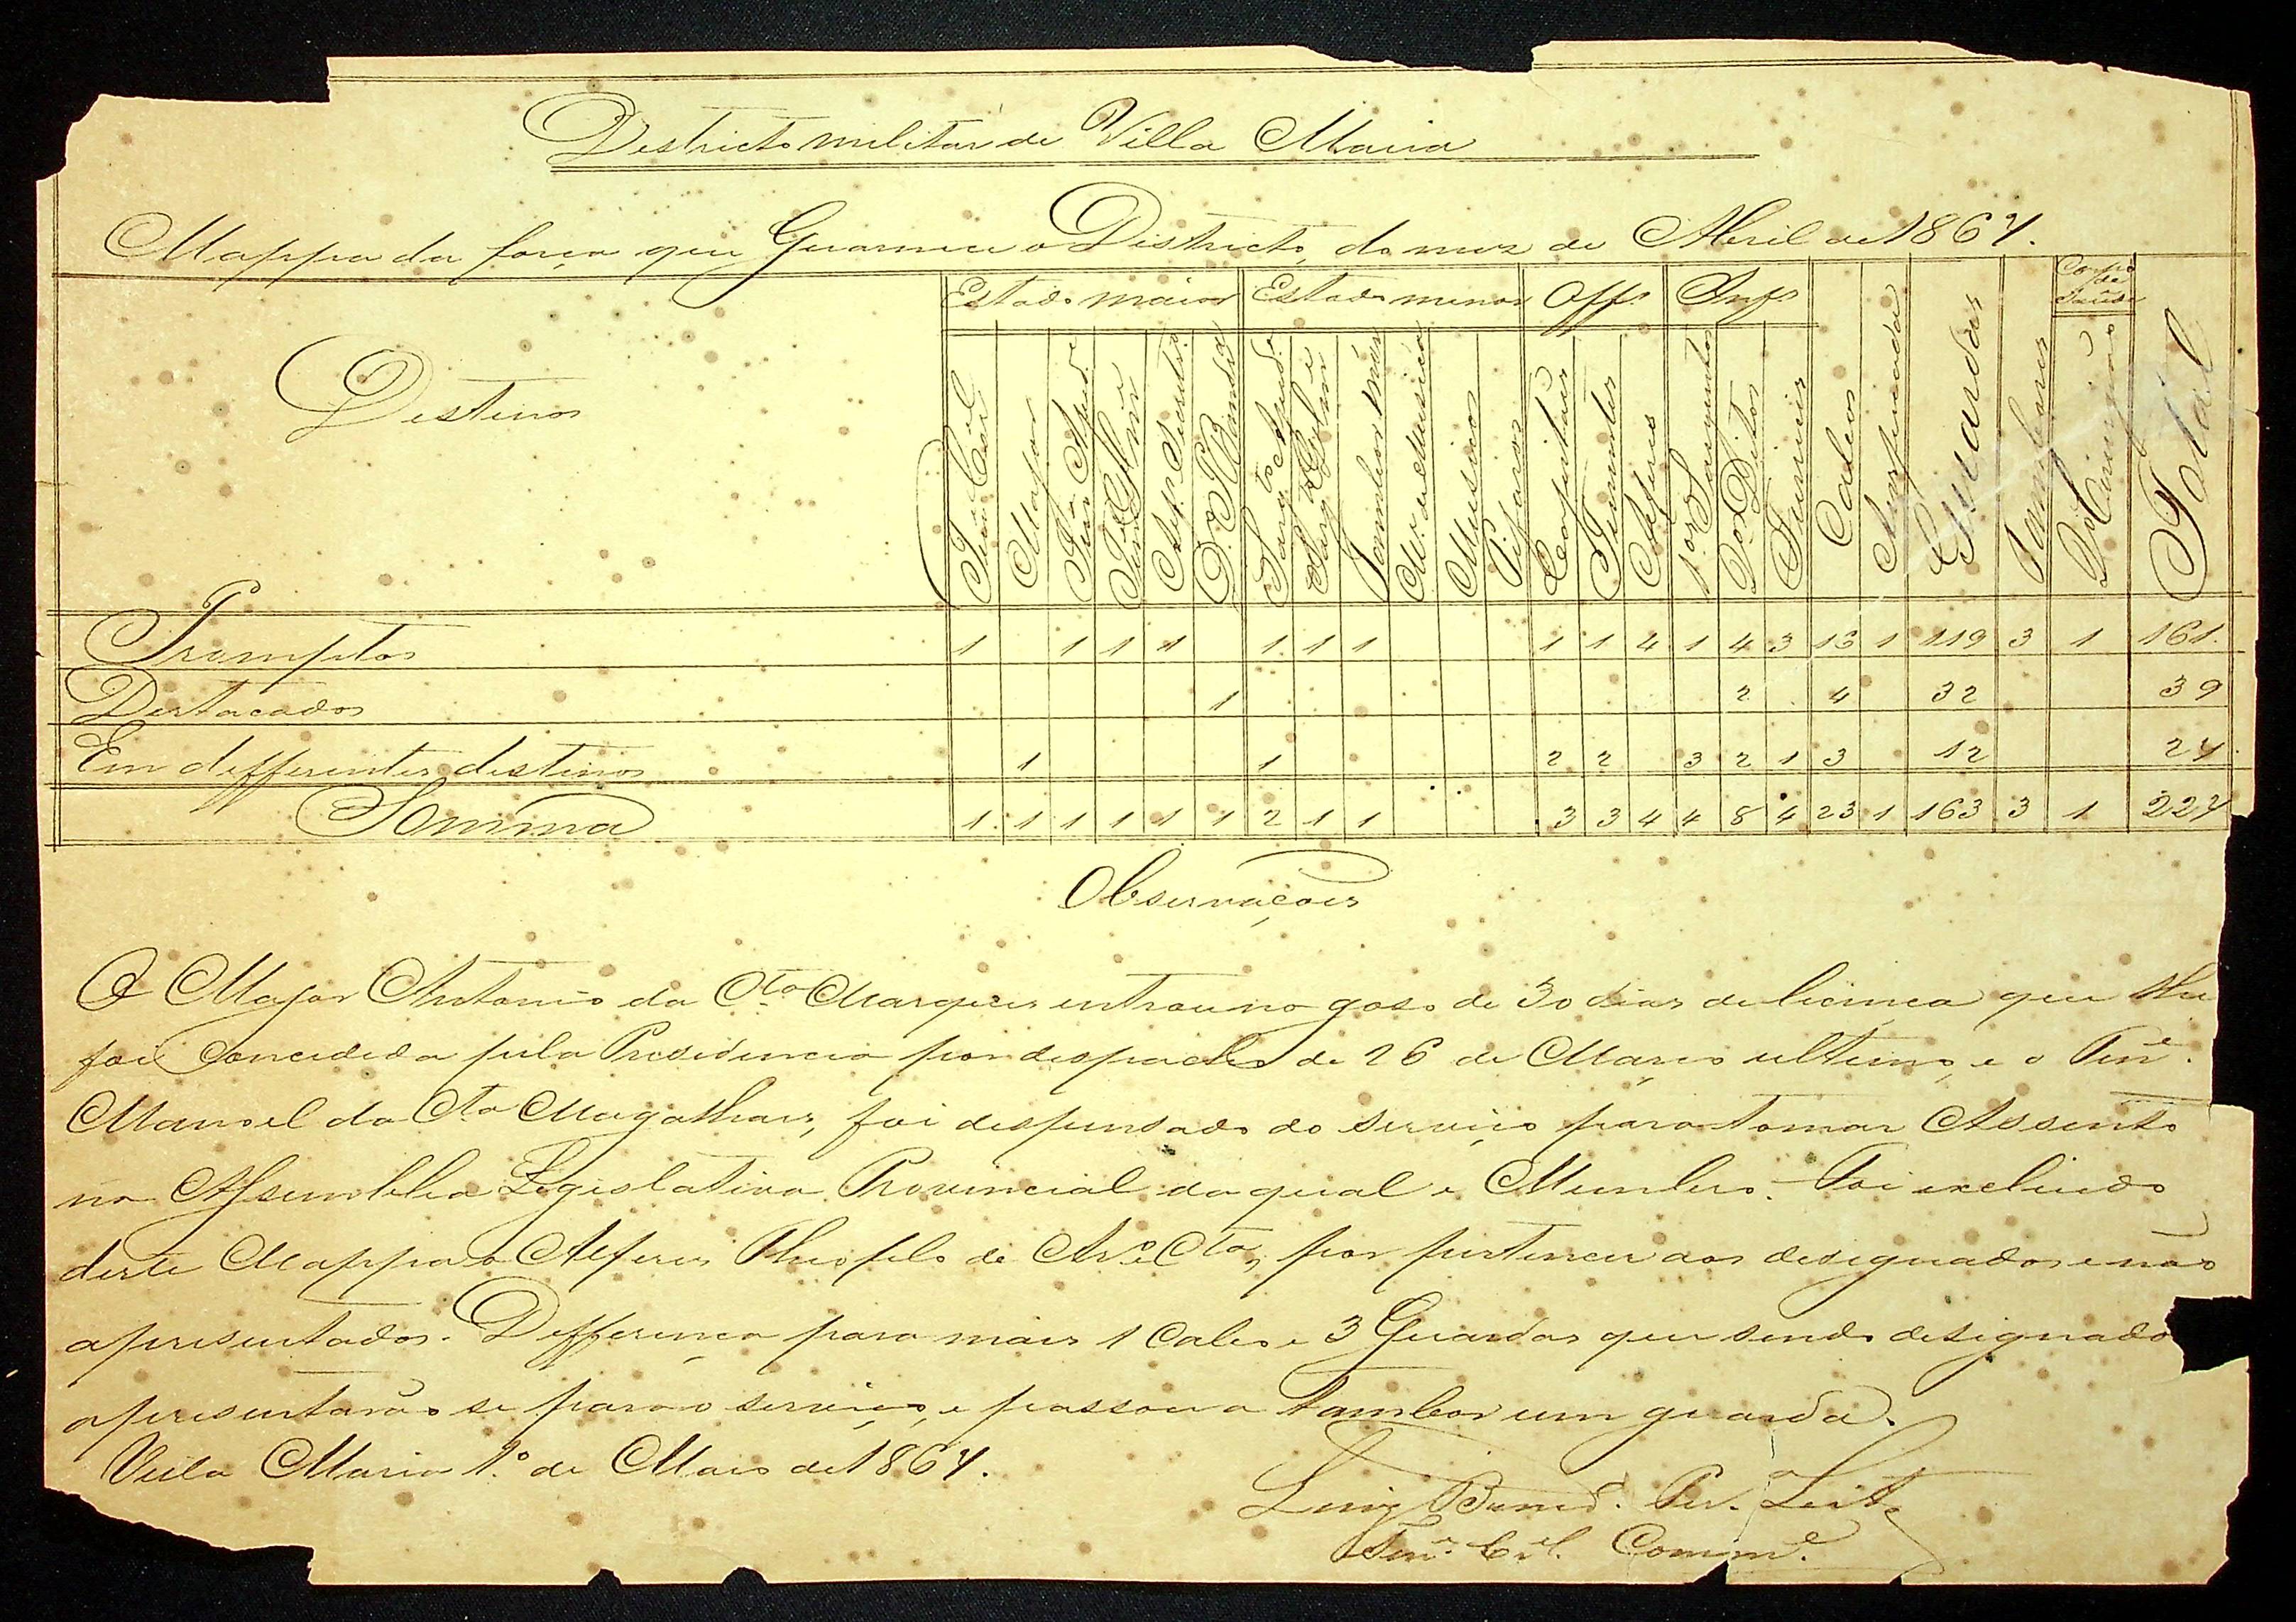 Districto militar de Villa Maria
Mappa da força que Guarnece o Districto, do mez de Abril de 1867.
Destinos
Estado maior Estado menor Off.s Inf.s Corpo de Saúde
Major
Musicos
Pifanos
Capitães
Tenentes
Alferes
1.os Sargentos
2.os Ditos
Furrieis
Cabos
Guardas
Tambores
Total
Promptos 1 1 1 1 1 1 1 1 1 4 1 4 3 13 1 119 3 1 161.
Destacados 1 2 4 32 39
Em defferentes destinos 1 1 2 2 3 2 1 3 12 27
Somma 1 1 1 1 1 1 2 1 1 3 3 4 4 8 4 23 1 163 3 1 227
Observações
O Major Antonio da C.ta Marques entrou no goso de 30 dias de licença que lhe
foi Concedida pela Presidencia por despacho de 26 de Março ultimo, e o Ten.e
Manoel da C.ta Magalhães, foi despensado do serviço para tomar Assento
na Assemblea Legislativa Provincial da qual e Membro. Foi excluido
deste Mappa o Alferes Theofilo de C.ta, por pertencer aos designados e não
apresentados. Defferença para mais 1 Cabo e 3 Guardas que sendo designado
apresentarão se para o serviço, e passou a Tambor um guarda.
Villa Maria 1.º de Maio de 1867.
Luiz Bened.º Per.ª Leite
Ten.e C.el Comm.e